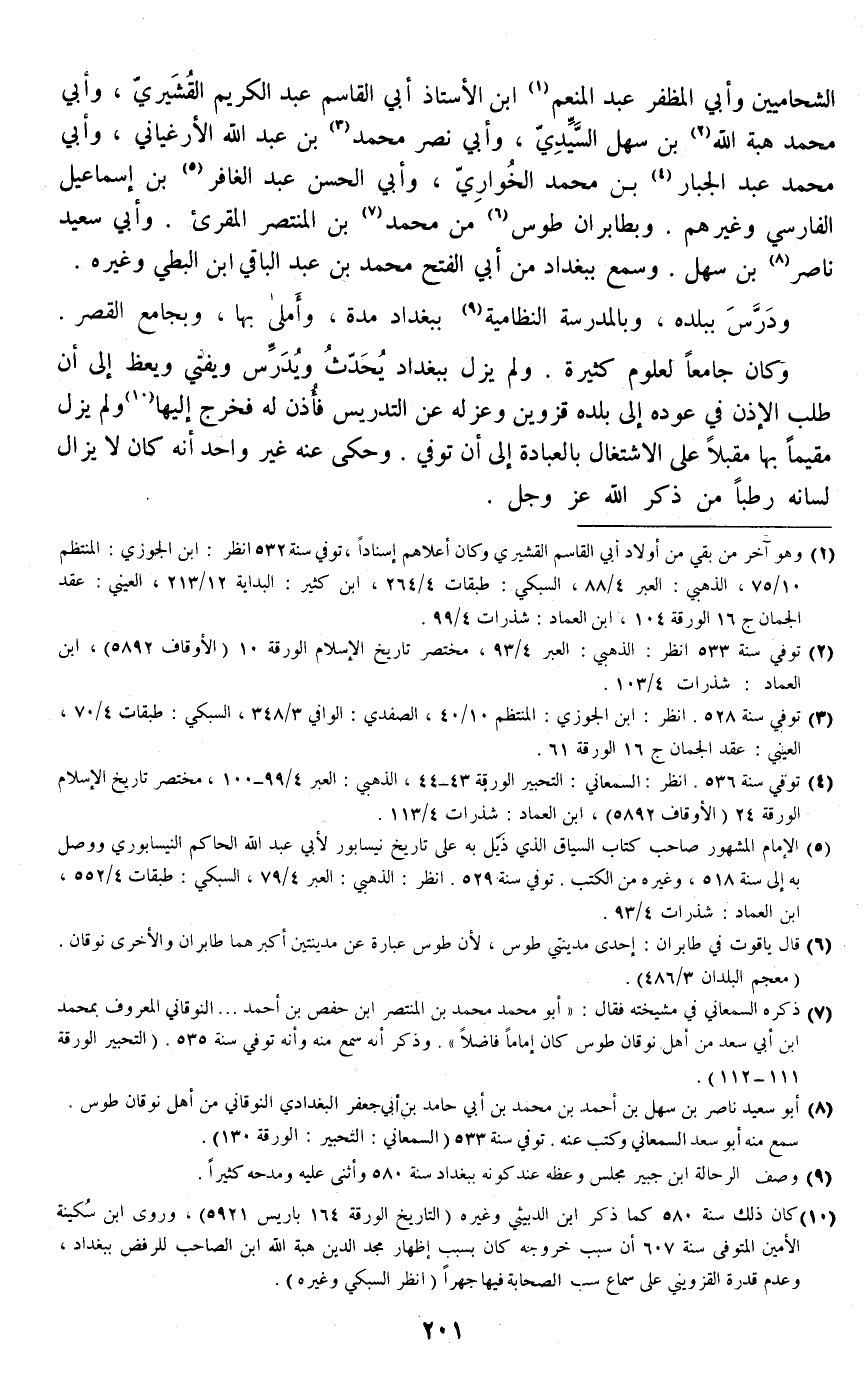 الشحاميين وأبي المظفر عبد المنعم(١) ابن الأستاذ أبي القاسم عبد الكريم القُشَيريّ ، وأبي
محمد هبة الله(٢) بن سهل السَّيِّدِيّ ، وأبي نصر محمد(٣) بن عبد الله الأرغياني ، وأبي
محمد عبد الجبار(٤) بـن محمد الخُواريّ ، وأبي الحسن عبد الغافر(٥) بن إسماعيل
الفارسي وغيرهم . وبطابران طوس(٦) من محمد(٧) بن المنتصر المقرئ . وأبي سعيد
ناصر(٨) بن سهل . وسمع ببغداد من أبي الفتح محمد بن عبد الباقي ابن البطي وغيره .
ودَرَّسَ ببلده ، وبالمدرسة النظامية(٩) ببغداد مدة ، وأَملىٰ بها ، وبجامع القصر .
وكان جامعاً لعلوم كثيرة . ولم يزل ببغداد يُحَدّثُ ويُدَرِّس ويفتي ويعظ إلى أن
طلب الإذن في عوده إلى بلده قزوين وعزله عن التدريس فأُذن له فخرج إليها(١٠) ولم يزل
مقيماً بها مقبلاً على الاشتغال بالعبادة إلى أن توفي . وحكى عنه غير واحد أنه كان لا يزال
لسانه رطباً من ذكر الله عز وجل .
(١) وهو آخر من بقي من أولاد أبي القاسم القشيري وكان أعلاهم إسناداً ، توفي سنة ٥٣٢ انظر : ابن الجوزي : المنتظم
٧٥/١٠ ، الذهبي : العبر ٨٨/٤ ، السبكي : طبقات ٢٦٤/٤ ، ابن كثير : البداية ٢١٣/١٢ ، العيني : عقد
الجمان ج ١٦ الورقة ١٠٤ ، ابن العماد : شذرات ٩٩/٤ .
(٢) توفي سنة ٥٣٣ انظر : الذهبي : العبر ٩٣/٤ ، مختصر تاريخ الإسلام الورقة ١٠ ( الأوقاف ٥٨٩٢) ، ابن
العماد : شذرات ١٠٣/٤ .
(٣) توفي سنة ٥٢٨ . انظر : ابن الجوزي : المنتظم ٤٠/١٠ ، الصفدي : الوافي ٣٤٨/٣ ، السبكي : طبقات ٧٠/٤ ،
العيني : عقد الجمان ج ١٦ الورقة ٦١ .
(٤) توفي سنة ٥٣٦ . انظر : السمعاني : التحبير الورقة ٤٣–٤٤ ، الذهبي : العبر ٩٩/٤–١٠٠ ، مختصر تاريخ الإسلام
الورقة ٢٤ ( الأوقاف ٥٨٩٢) ، ابن العماد : شذرات ١١٣/٤ .
(٥) الإمام المشهور صاحب كتاب السياق الذي ذَيّل به على تاريخ نيسابور لأبي عبد الله الحاكم النيسابوري ووصل
به إلى سنة ٥١٨ ، وغيره من الكتب . توفي سنة ٥٢٩ . انظر : الذهبي : العبر ٧٩/٤ ، السبكي : طبقات ٥٥٢/٤ ،
ابن العماد : شذرات ٩٣/٤ .
(٦) قال ياقوت في طابران : إحدى مدينتي طوس ، لأن طوس عبارة عن مدينتين أكبرهما طابران والأخرى نوقان .
( معجم البلدان ٤٨٦/٣) .
(٧) ذكره السمعاني في مشيخته فقال : « أبو محمد محمد بن المنتصر ابن حفص بن أحمد ... النوقاني المعروف بمحمد
ابن أبي سعد من أهل نوقان طوس كان إماماً فاضلاً » . وذكر أنه سمع منه وأنه توفي سنة ٥٣٥ . ( التحبير الورقة
١١١–١١٢ ) .
(٨) أبو سعيد ناصر بن سهل بن أحمد بن محمد بن أبي حامد بن أبي جعفر البغدادي النوقاني من أهل نوقان طوس .
سمع منه أبو سعد السمعاني وكتب عنه . توفي سنة ٥٣٣ ( السمعاني : التحبير : الورقة ١٣٠) .
(٩) وصف الرحالة ابن جبير مجلس وعظه عند كونه ببغداد سنة ٥٨٠ وأثنى عليه ومدحه كثيراً .
(١٠) كان ذلك سنة ٥٨٠ كما ذكر ابن الدبيثي وغيره ( التاريخ الورقة ١٦٤ باريس ٥٩٢١) ، وروى ابن سُكينة
الأمين المتوفى سنة ٦٠٧ أن سبب خروجه كان بسبب إظهار مجد الدين هبة الله ابن الصاحب للرفض ببغداد ،
وعدم قدرة القزويني على سماع سب الصحابة فيها جهراً ( انظر السبكي وغيره ) .
٢٠١